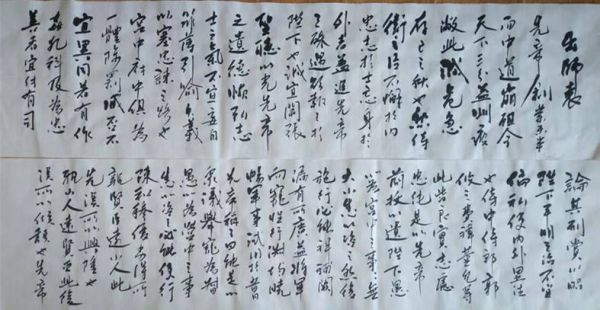 出師表
先帝創業未半
而中道崩殂今
天下三分益州疲
敝此誠危急
存亡之秋也然侍
衛之臣不懈於內
忠志之士忘身於
外者蓋追先帝
之殊遇欲報之於
陛下也誠宜開張
聖聽以光先帝
之遺德恢弘志
士之氣不宜妄自
菲薄引喻失義
以塞忠諫之路也
宮中府中俱為
一體陟罰臧否不
宜異同若有作
姦犯科及為忠
善者宜付有司
論其刑賞以昭
陛下平明之治不宜
偏私使內外異法
也侍中侍郎郭
攸之費禕董允等
此皆良實志慮
忠純是以先帝
簡拔以遺陛下愚
以為宮中之事無
大小悉以咨之然後
施行必能裨補闕
漏有所廣益將軍
向寵性行淑均曉
暢軍事試用於昔
先帝稱之曰能是以
眾議舉寵為督
愚以為營中之事
悉以咨之必能使行
陣和穆優劣得所
親賢臣遠小人此
先漢所以興隆也
親小人遠賢臣此後
漢所以傾頹也先帝